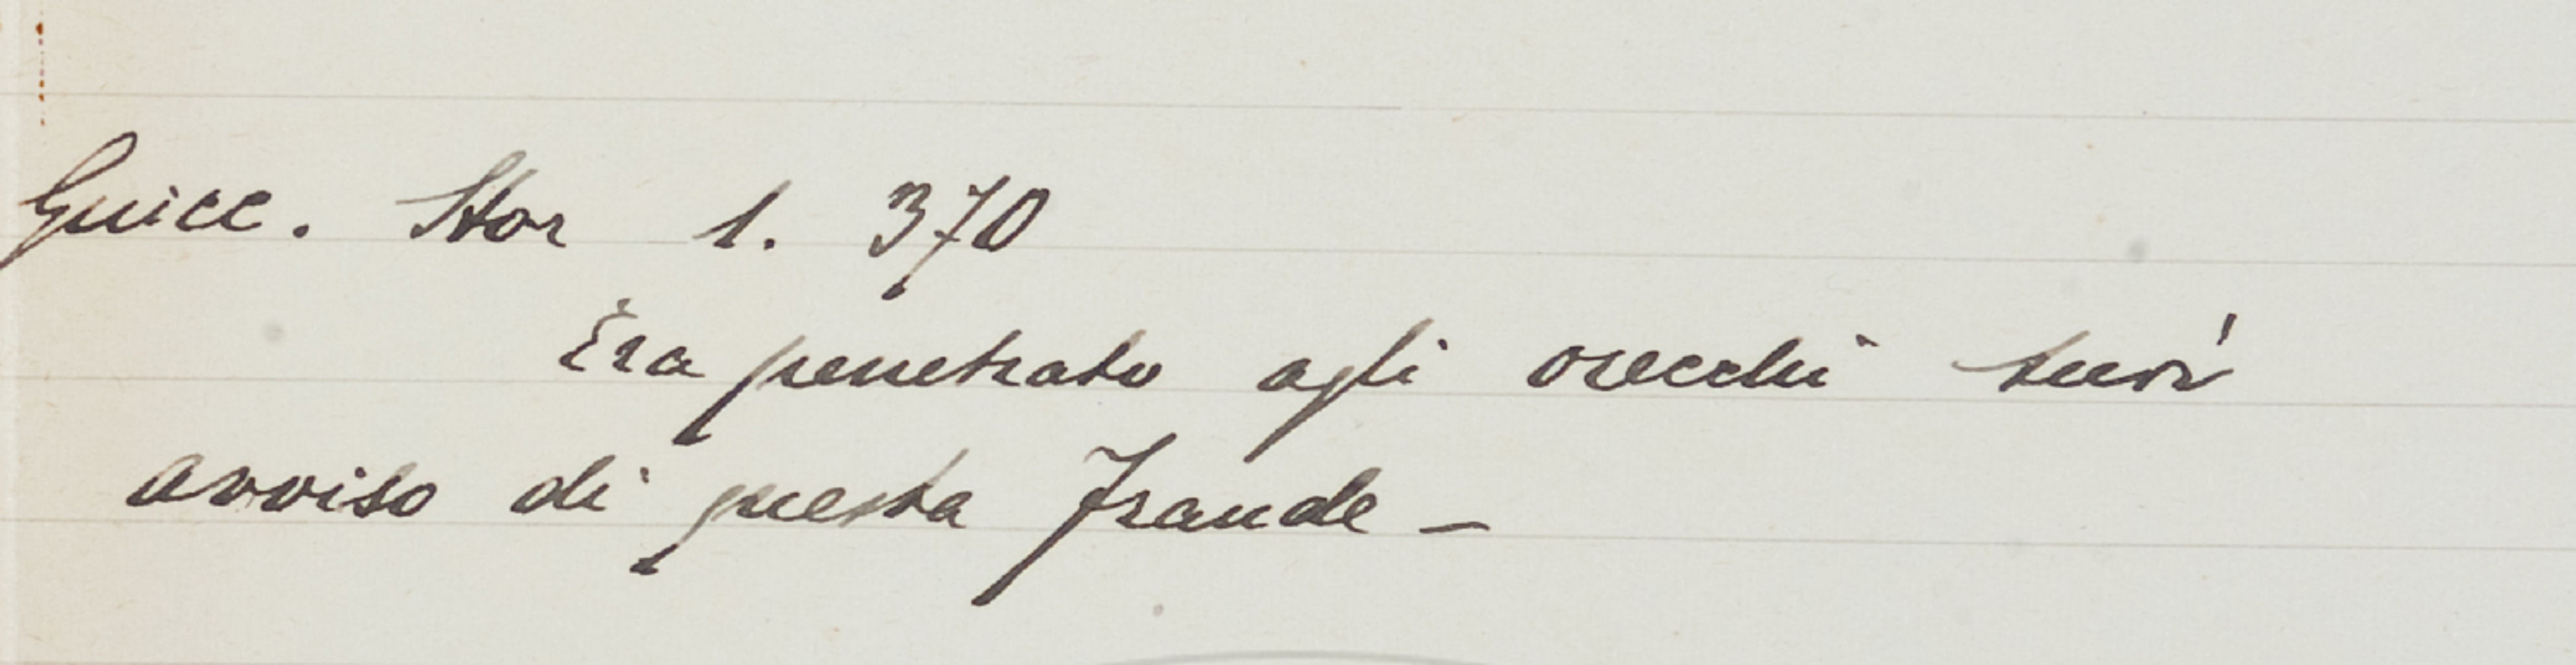 Guicc. Stor 1. 370
Era penetrato agli orecchi suoi
avviso di questa fraude –